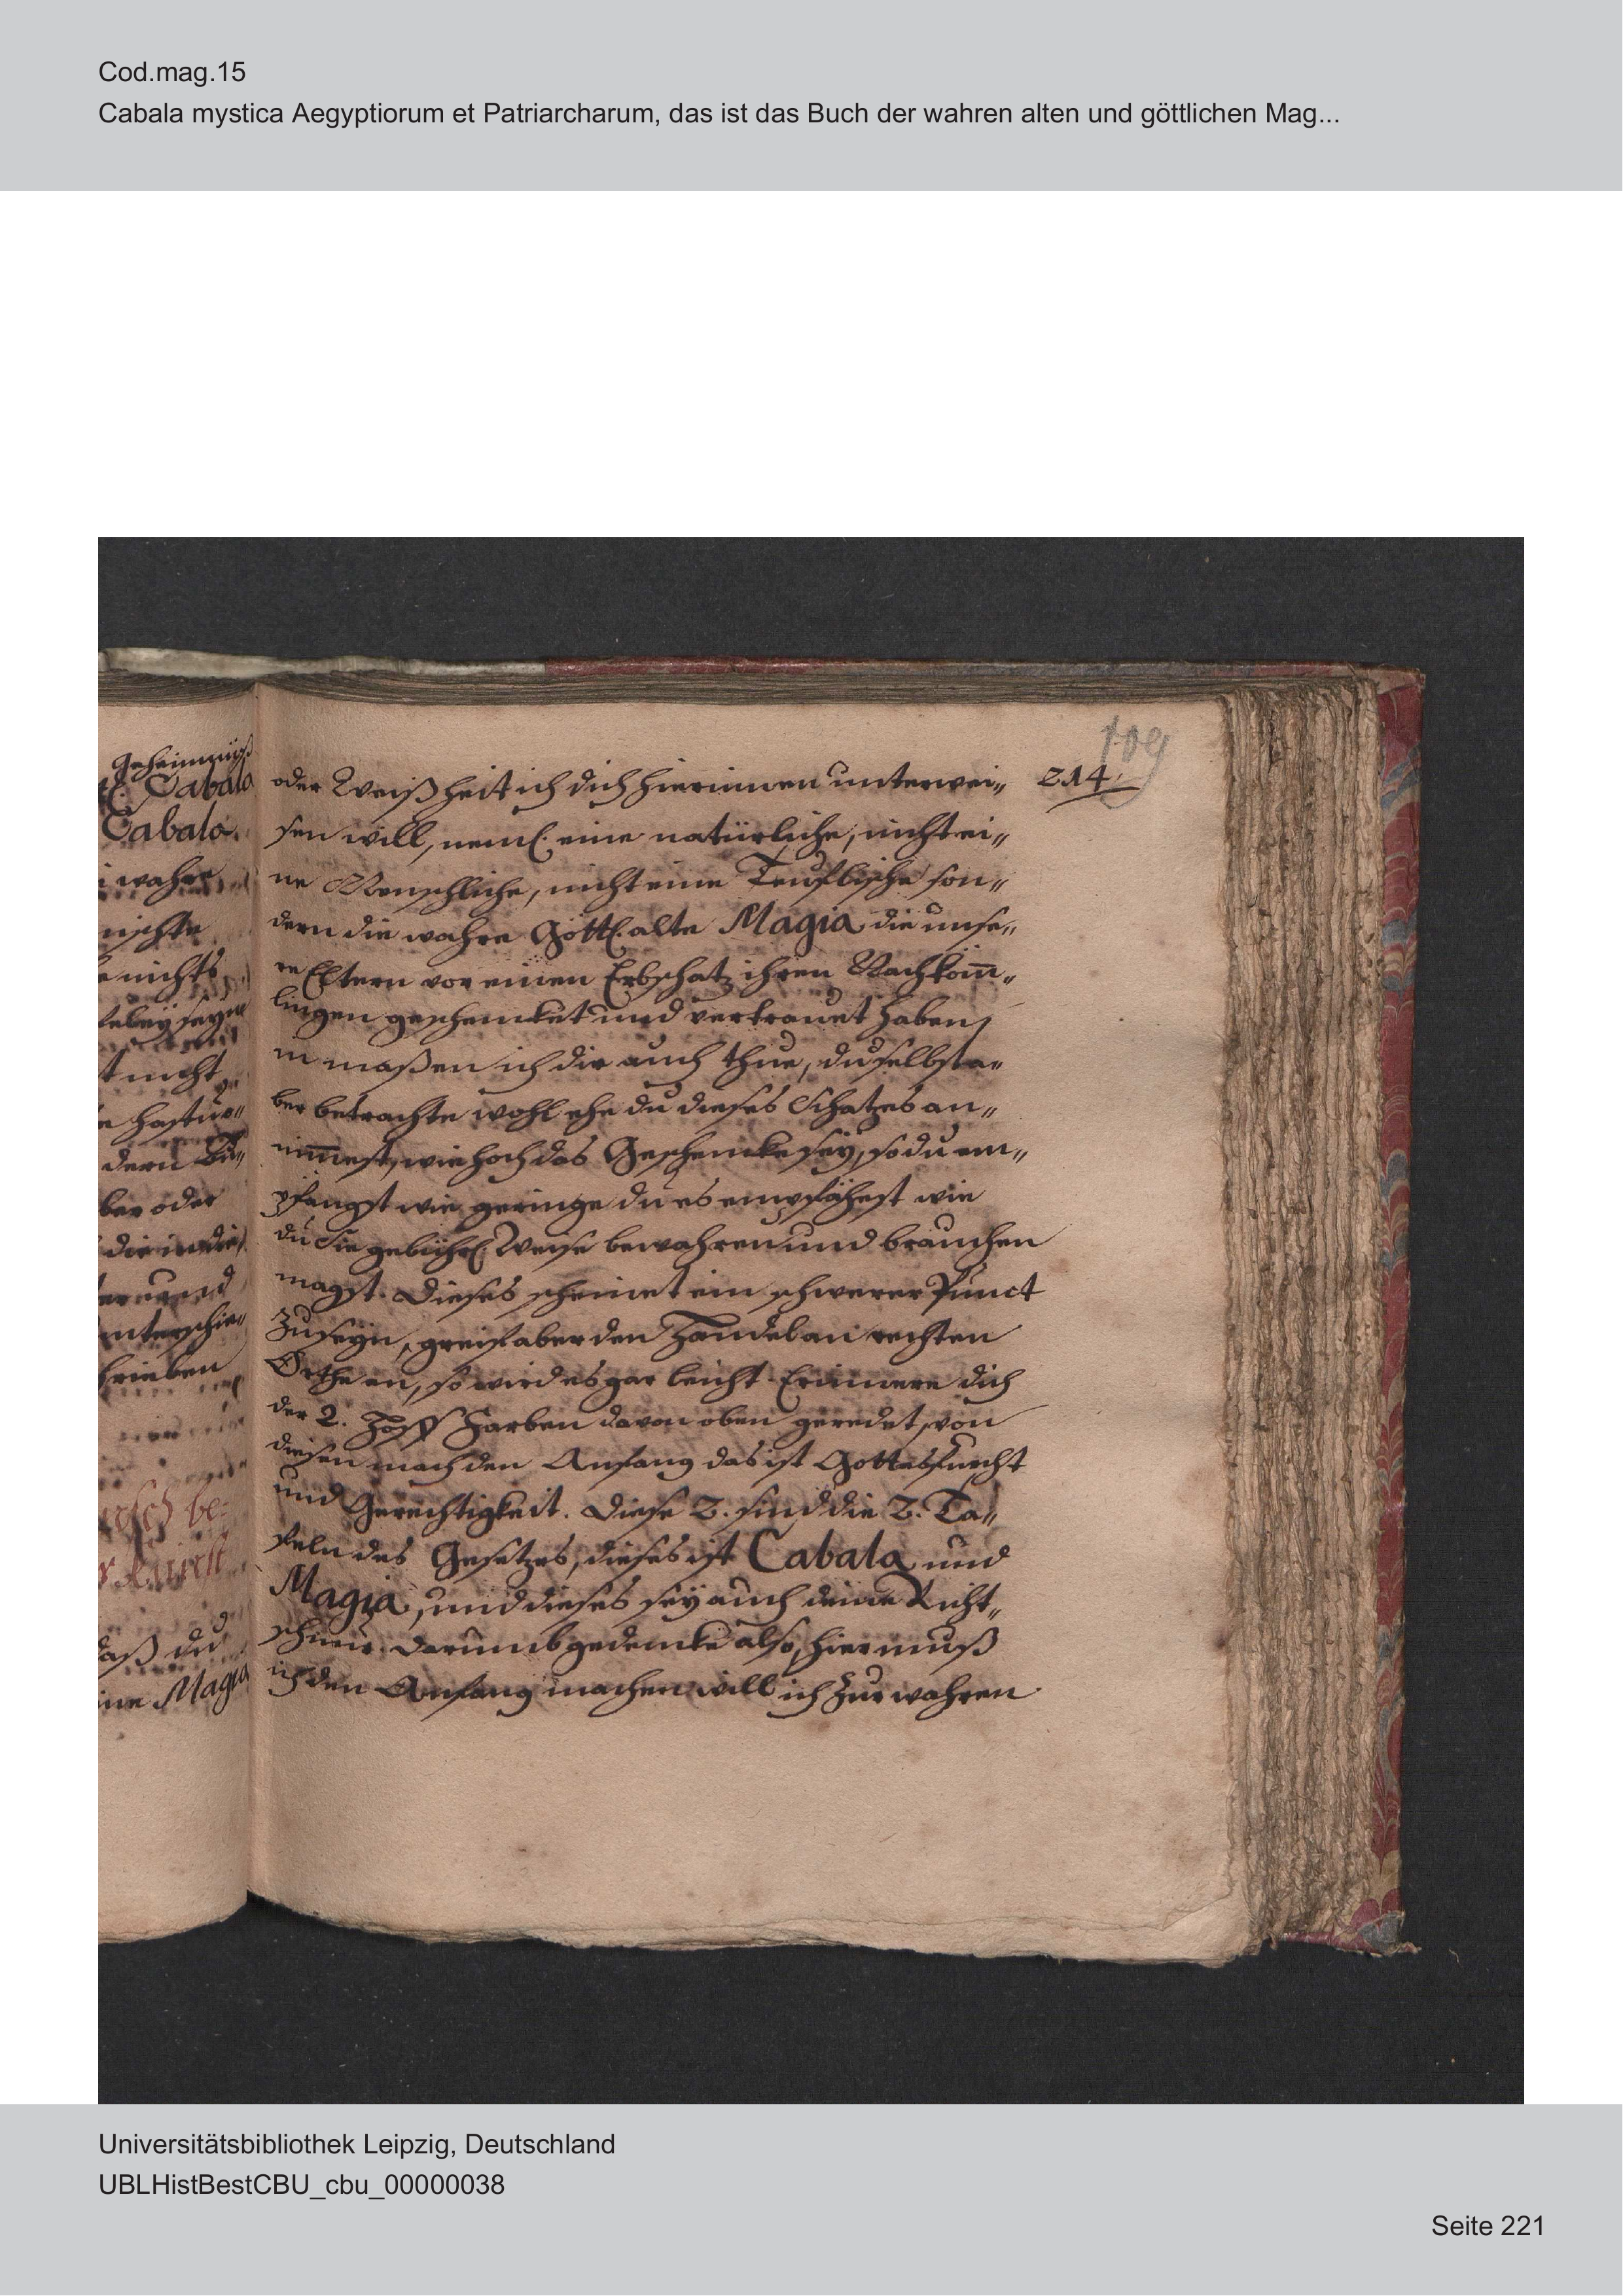 Cod.mag.15
Cabala mystica Aegyptiorum et Patriarcharum, das ist das Buch der wahren alten und göttlichen Mag...
Geheimnüß
Cabala
Cabala.
wahre
nichts
t nicht
ber oder
daß du
ine Magia
109
214.
oder Weißheit ich dich hierinnen unterwei„
sen will, neml. eine natürliche, nicht ei„
ne Menschliche, nicht eine Teuflische son„
dern die wahre Göttl. alte Magia die unse„
re Eltern vor einen Erbschatz ihren Nachkom̄„
lingen geschencket und vertrauet haben,
maßen ich dir auch thue, du selbst a„
ber betrachte wohl ehe du dieses Schatzes an„
nim̄est, wie hoch das Geschencke sey, so du em„
pfangst wie geringe du es empfähest wie
du Sie gebührl. Weise bewahren und brauchen
magst. Dieses scheinet ein schwerer Punct
zu seyn, greif aber den Handel an rechten
Orthe an, so wird es gar leicht. Erinnere dich
der 2. davon oben geredet, von
diesen mach den Anfang das ist Gottesfurcht
und Gerechtigkeit. Diese 2. sind die 2. Ta„
feln des Gesetzes, dieses ist Cabala und
Magia, und dieses sey auch deine Richt„
schnur. Darumb gedencke also, hier muß
ich den Anfang machen will ich zur wahren
Universitätsbibliothek Leipzig, Deutschland
UBLHistBestCBU_cbu_00000038
Seite 221